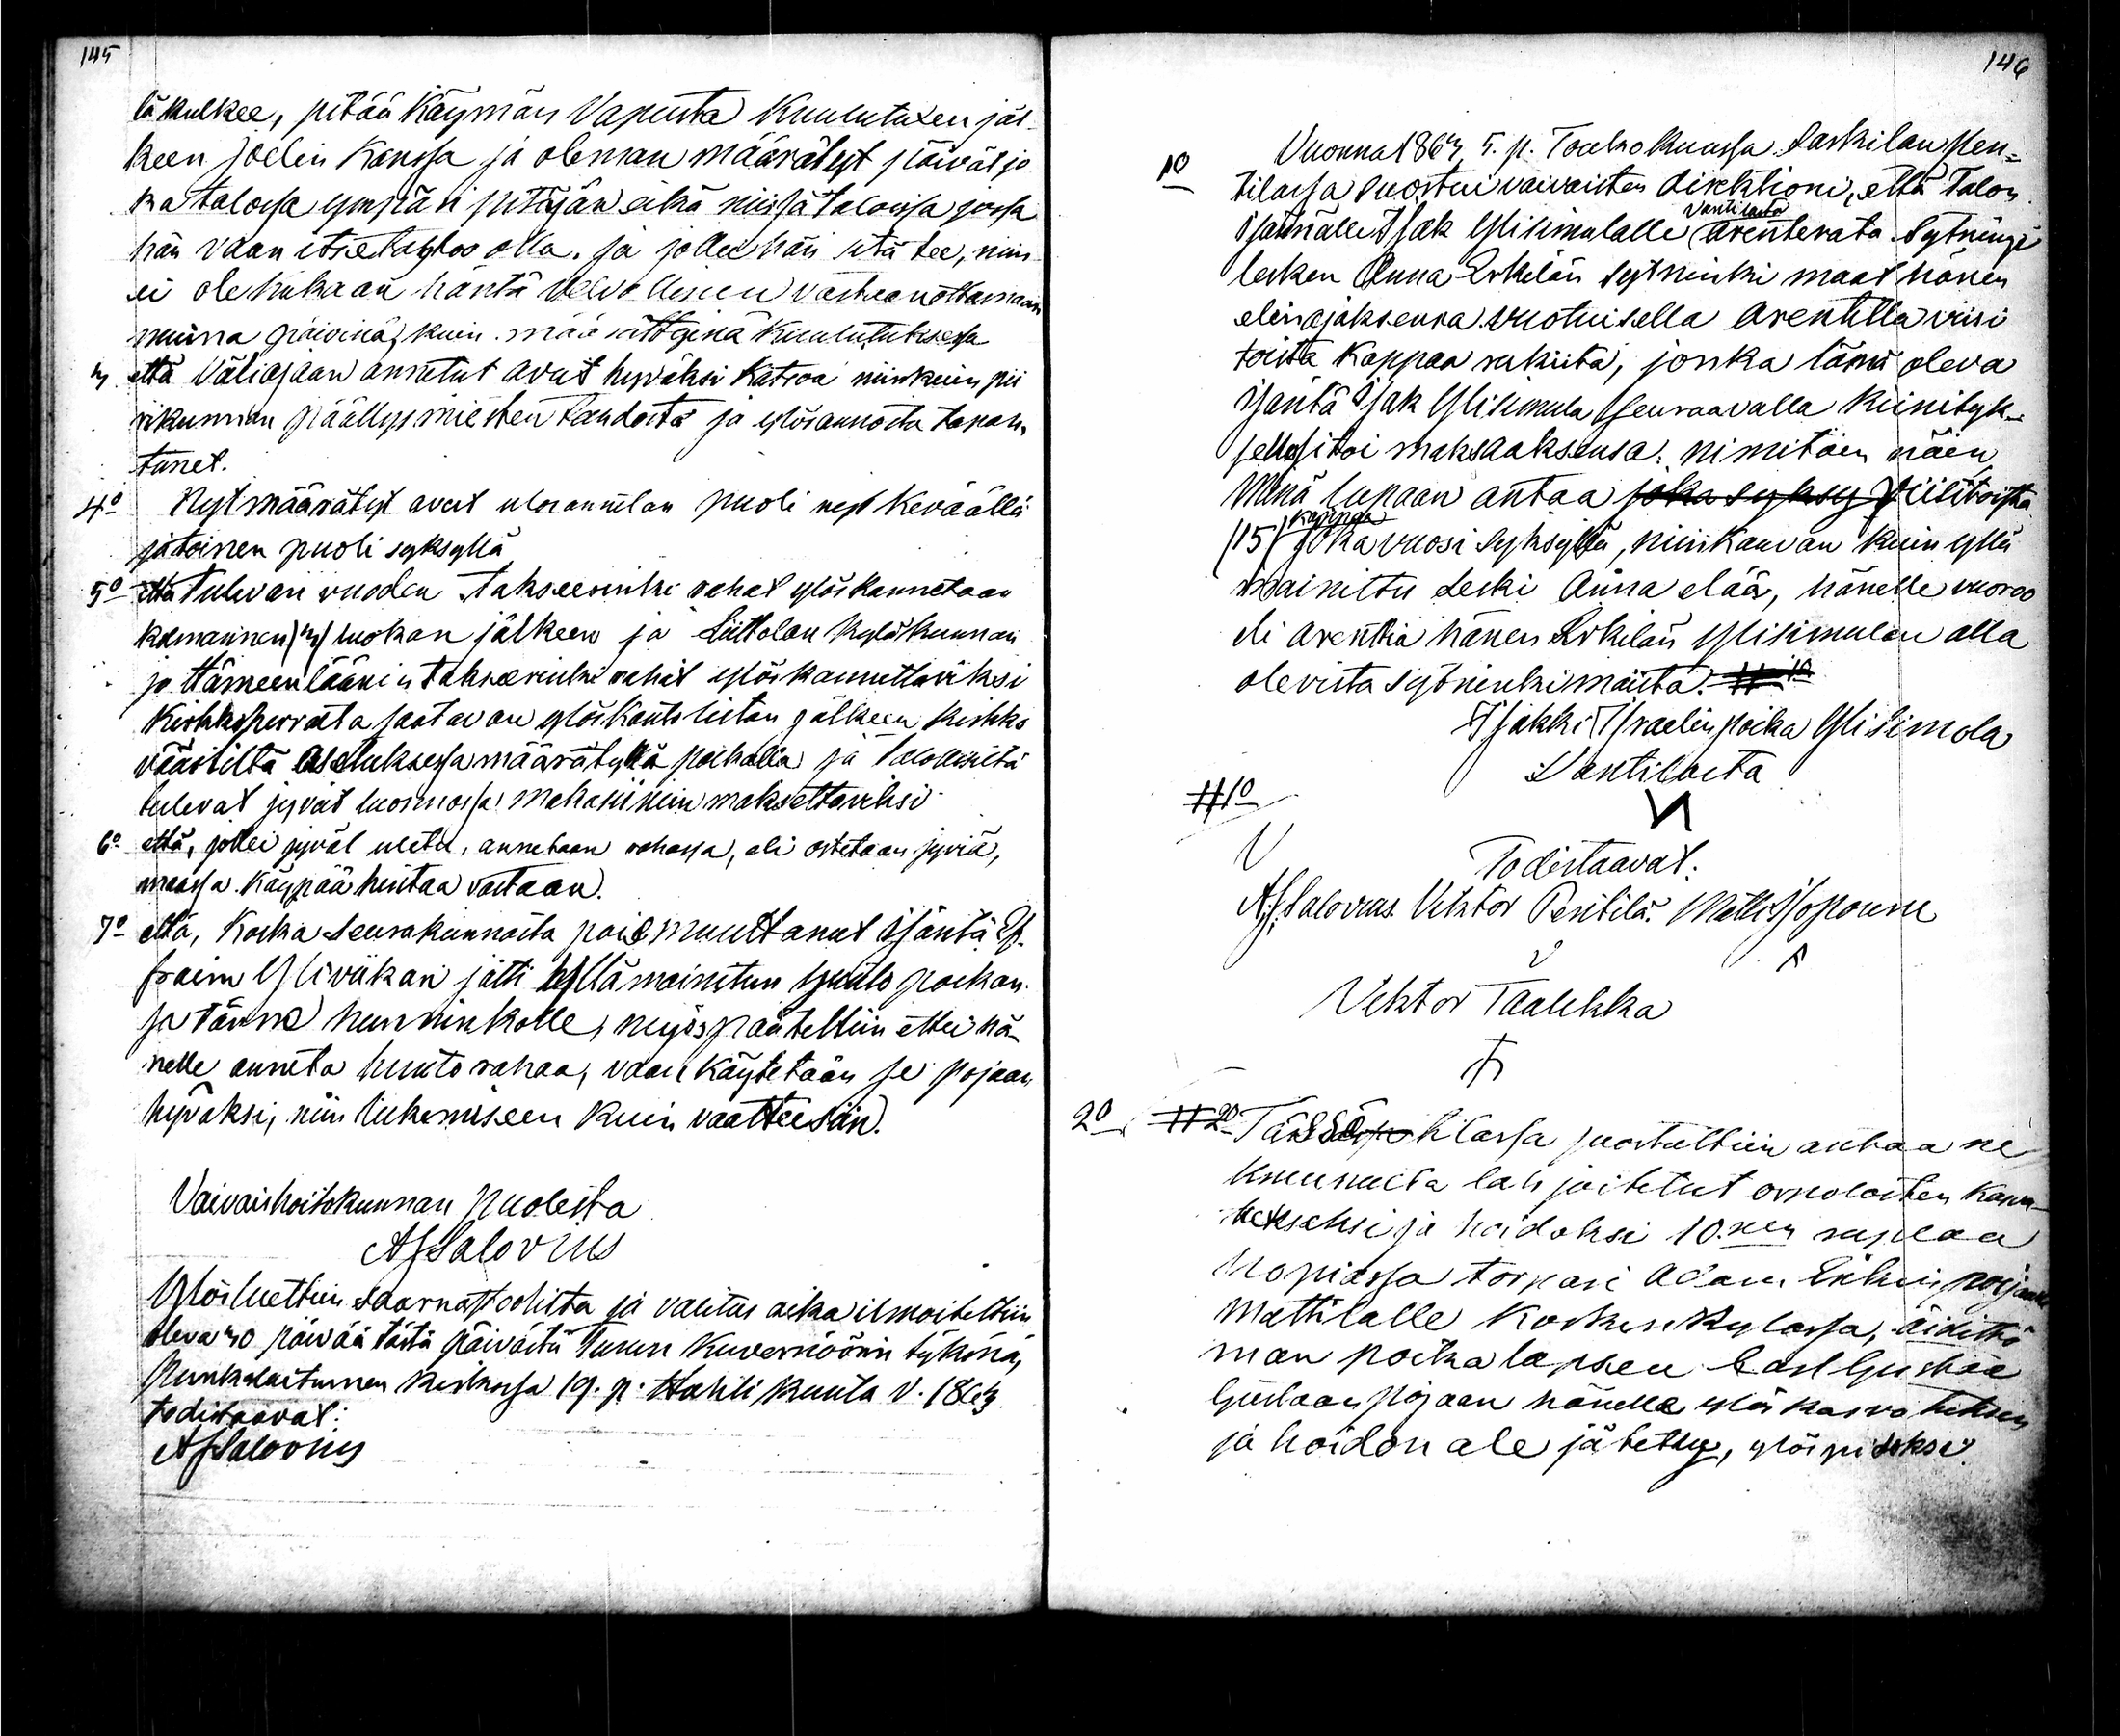 145
lä kulkee, pitää Käymän Vapusta Kuulutuxen jäl-
keen Joelin Kanssa ja oleman määrätyt päivät jo
ka talossa ympäri pitäjän eikä niissä taloissa jossa
hän vaan itse tahtoo olla. ja jollei hän sitä tee, niin
ei ole kukaan häntä velvollinen vastaanottamaan
muina päivinä, kuin määrättyinä Kuulutuksessa
3 että Väliajaan annetut avut hyväksi Katsoa niinkuin pii
rikunnan päällysmiesten tahdosta ja ylösannosta tapah
tunet.
4º Nyt määrätyt avut ulosannetan puoli nyt Keväällä
ja toinen puoli syksyllä
5º että tulevan vuoden takseerinki rahat ylöskannetaan
kolmannen (3) luokan jälkeen ja Liittolan kyläkunnan
ja Hämeenläänin takseerinki rahat ylöskannettaviksi
Kirkkoherralta saatavan ylöskantolistan jälkeen Kirkko
väärtiltä Asetuksessa määrätyllä palkalla ja Talollisilta
tulevat jyvät luonnossa makasiiniin maksettaviksi
6º että, jollei jyvät uletu, annetaan rahassa, eli ostetaan jyviä,
maassa Käypää hintaa vastaan.
7º että, Koska Seurakunnasta pois muuttanut isäntä Ef-
fraim Yliviikari jätti yllämainitun huuto poikan
sa tänne hunninkolle, myös päätettiin ettei hä-
nelle anneta huuto rahaa, vaan Käytetään se pojaan
hyväksi, niin lukemiseen kuin vaatteisiin.
Vaivaishoitokunnan puolesta
AfSalovius
Ylösluettiin saarnastoolista ja valitus aika ilmoitettiin
oleva 30 päivää tästä päivästä Turun Kuvernöörin tykönä,
Punkalaitumen Kirkossa 19. p. Huhti kuuta v. 1863
todistaavat:
AfSalovius
146
1º Vuonna 1863, 5. p. Toukokuussa Sarkilan Pen=
tilassa suostui vaivaisten direktioni, että Talon
Vantilasta
Isännälle Isak Ylisimulalle arenterata Sytningi
lesken Anna Erkilän sytninki maat hänen
elinajaksensa vuotuisella Arentilla viisi
toista Kappaa rukiita, jonka läsnä oleva
isäntä Isak Ylisimula seuraavalla Kiinityk-
sellä sitoi maksaaksensa: nimitäin näin
Minä lupaan antaa joka syksy Viisitoista
Kappaa
(15) joka vuosi syksyllä, niinkauvan kuin yllä
mainittu Leski Anna elää, hänelle vuoroo
eli arentia hänen Erkilän Ylisimulan alla
olevista sytninkimaista. # 1º
Isakki Israelinpoika Ylisimola
Vantilasta
#1º
Todistaavat:
AfSalovius. Vihtor Pentilä. Matti Isoponnu
Vihtor Taalikka
2º #2º Tässä tilassa suostuttiin antaa ne
kunnasta lahjoitetut orpolasten kasva-
tukseksi ja hoidoksi 10.nen ruplaa
hopiassa torpari Adam Eskin pojan
Mattilalle Kosken kylässä, äidittö
män poikalapsen Carl Gustaa
Gustaan pojaan hänelle ylös kasvatuksen
ja hoidon ale jätetty, ylöspidoksi.